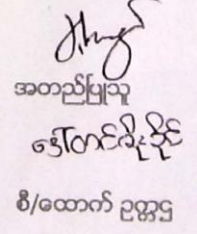 အတည်ပြုသူ
ဒေါ်တင်စိုးခိုင်
စီ/ထောက် ဥက္ကဌ